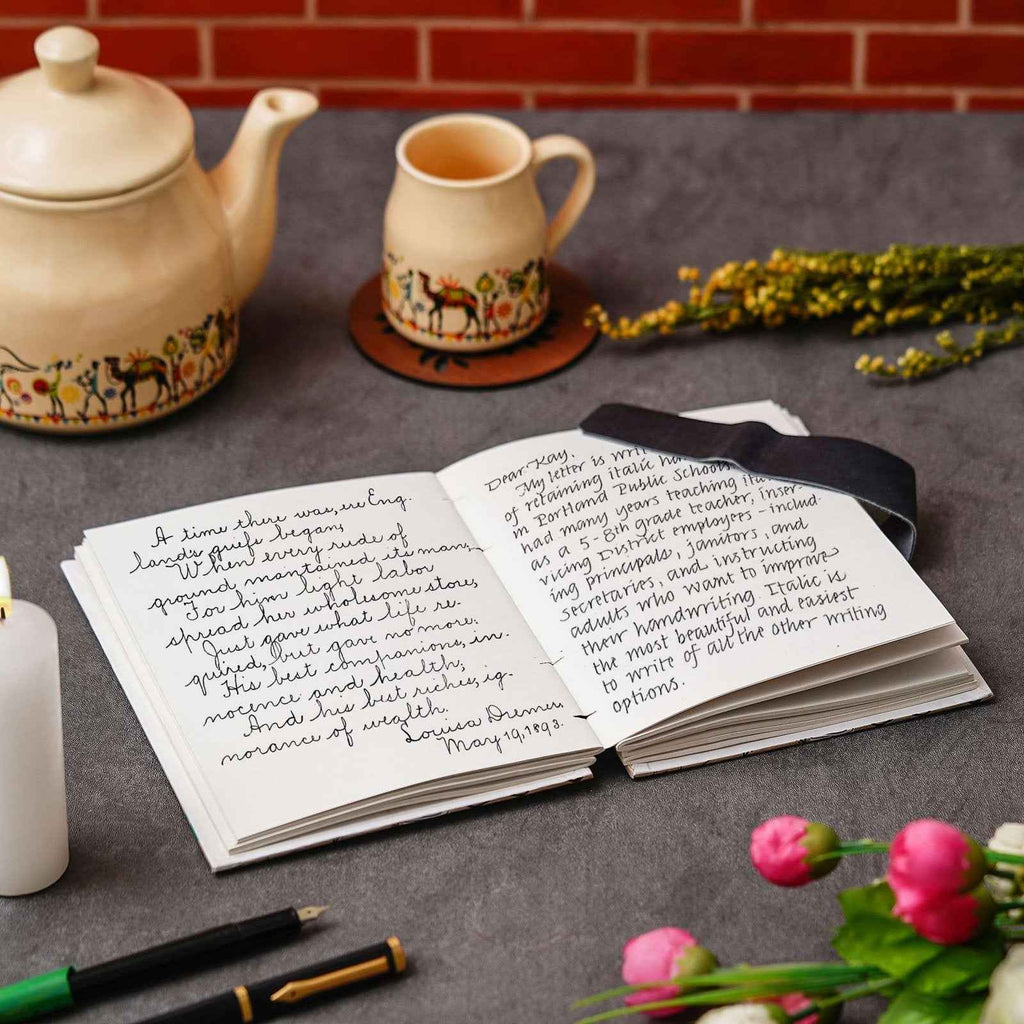 A time there was, ere Eng-
land's griefs began,
When every rude of
ground mantained its man;
For him light labor
spread her wholesome store,
Just gave what life re-
quired, but gave no more;
His best companions, in-
nocence and health;
And his best riches, ig-
norance of wealth.
Louisa Diemer
May 19, 1893.
Dear Kay,
My letter is
of retaining italic
in Portland Public Schools
had many years teaching
as a 5-8th grade teacher, inser-
vicing District employees – includ-
ing principals, janitors, and
secretaries, and instructing
adults who want to improve
their handwriting. Italic is
the most beautiful and easiest
to write of all the other writing
options.